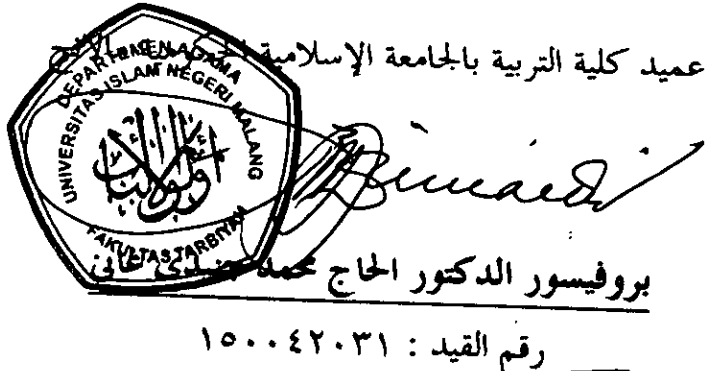 عميد كلية التربية بالجامعة الإسلامية
DEPARTEMEN AGAMA
UNIVERSITAS ISLAM NEGERI MALANG
FAKULTAS TARBIYAH
بروفيسور الدكتور الحاج محمد
رقم القيد : ١٥٠٠٤٢٠٣١